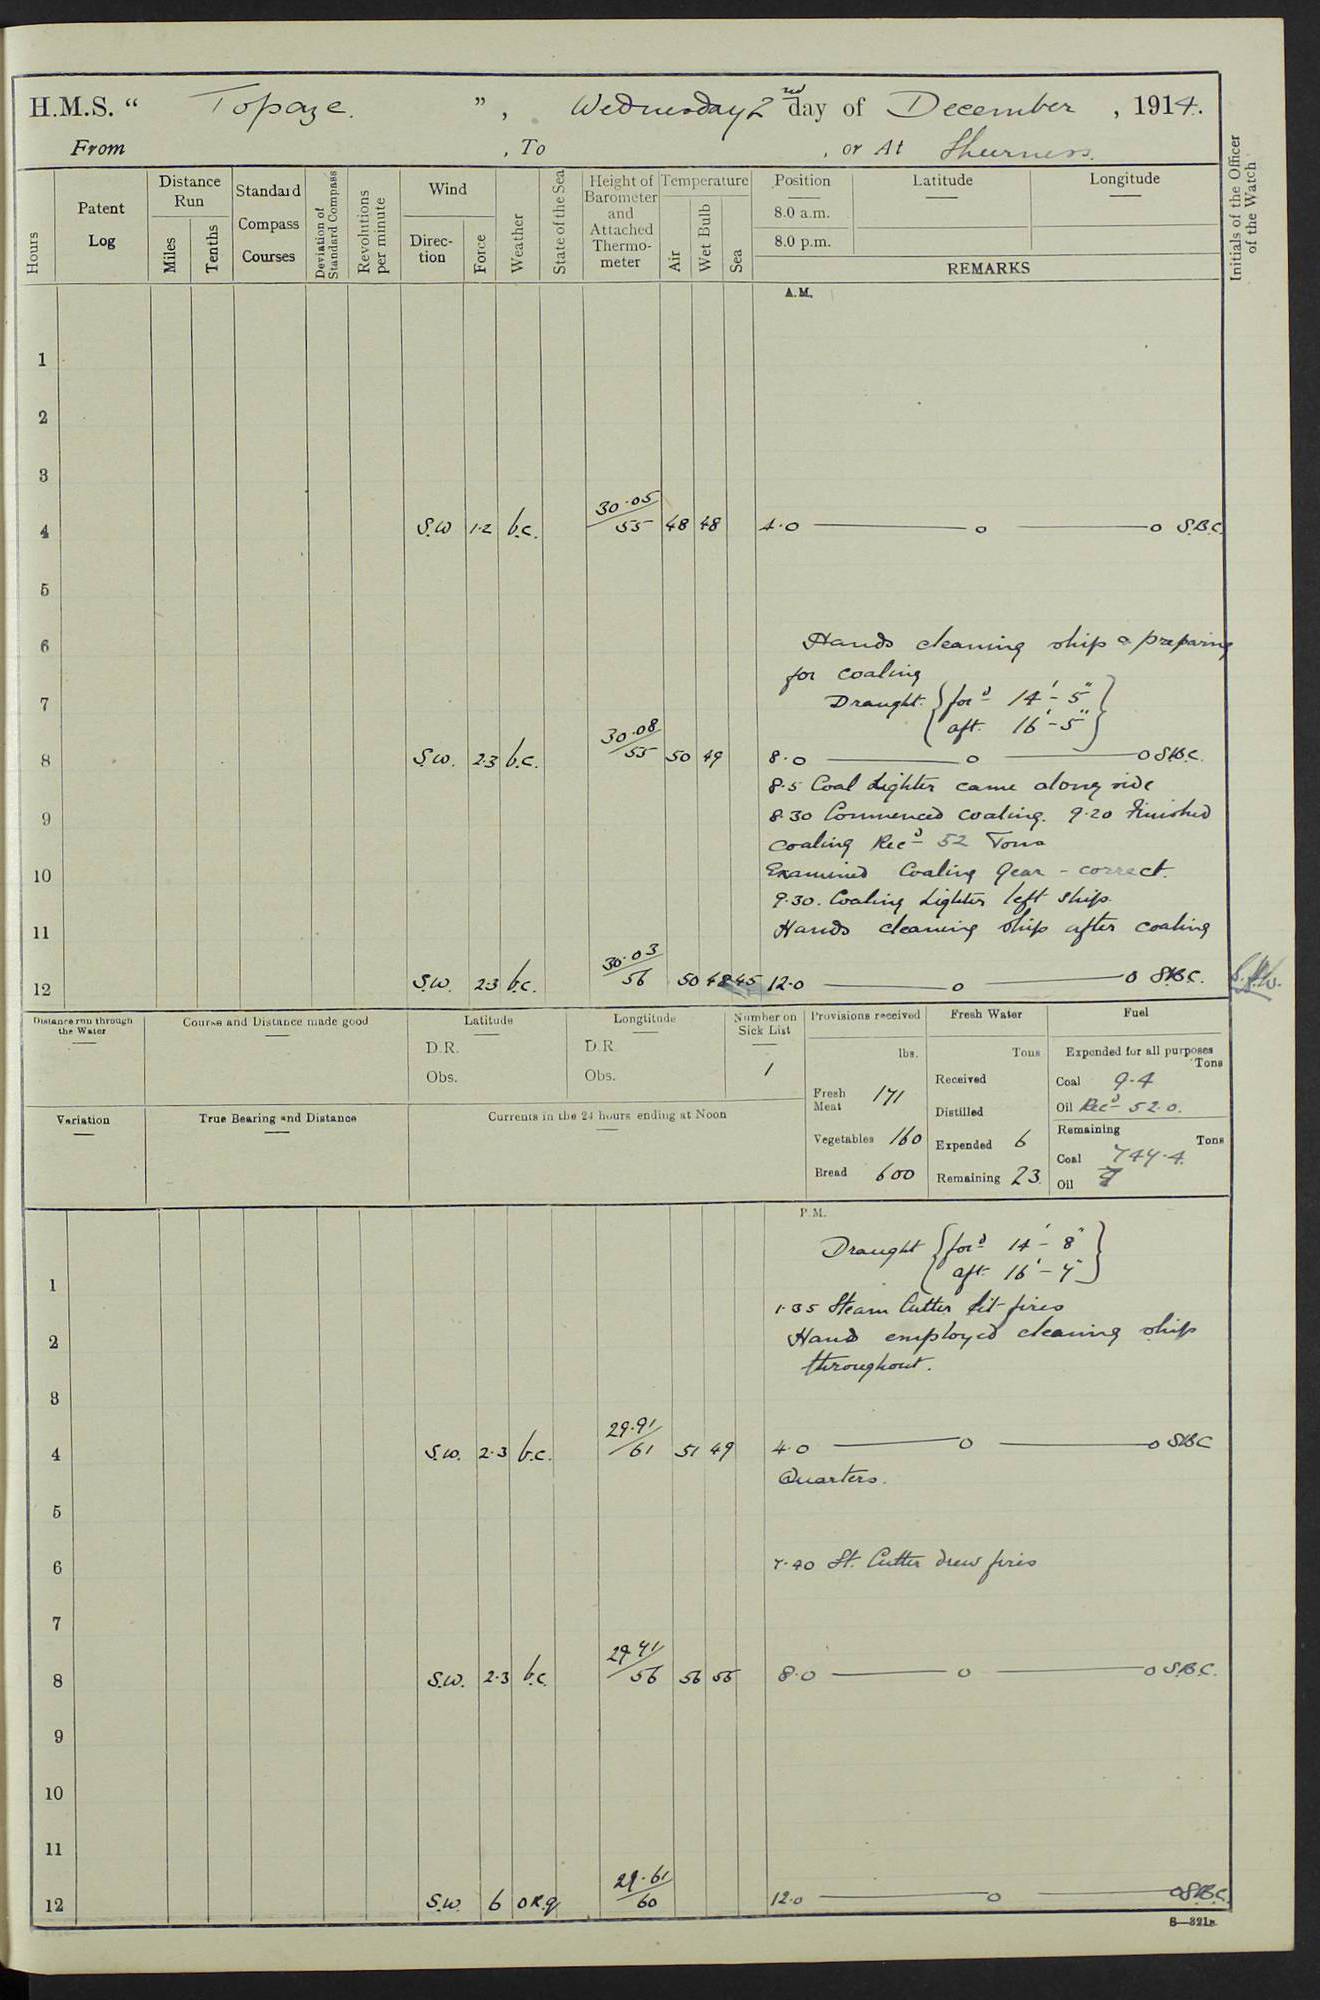 H.M.S. “ Topaze. ”, Wednesday 2nd day of December, 1914.
From , To , or At Sheerness.
Hours
Patent Log
Distance Run
Miles
Tenths
Standard Compass Courses
Deviation of Standard Compass
Revolutions per minute
Wind
Direction
Force
Weather
State of the Sea
Height of Barometer and Attached Thermometer
Temperature
Air
Wet Bulb
Sea
Position
8.0 a.m.
8.0 p.m.
Latitude
Longitude
REMARKS
Initials of the Officer of the Watch
A.M.
1
2
3
4 S.W 1·2 b.c. 30·05/55 48 48 4·0 — o — o S.B.C.
5
6 Hands cleaning ship & preparing
for coaling
7 Draught { for'd 14' - 5" }
{ aft. 16' - 5" }
8 S.W. 2·3 b.c. 30·08/55 50 49 8·0 — o — o S.B.C.
8·5 Coal Lighter came along side
9 8·30 Commenced coaling. 9·20 Finished
coaling Rec'd 52 Tons
10 Examined Coaling Gear - correct.
9·30. Coaling Lighter left ship.
11 Hands cleaning ship after coaling
12 S.W. 2·3 b.c. 30·03/56 50 48 45 12·0 — o — o S.B.C.
Distance run through the Water
Course and Distance made good
Latitude
D.R.
Obs.
Longtitude
D.R.
Obs.
Number on Sick List
1
Provisions received
lbs.
Fresh Meat 171
Vegetables 160
Bread 600
Fresh Water
Tons
Received
Distilled
Expended 6
Remaining 23.
Fuel
Expended for all purposes
Tons
Coal 9·4
Oil Rec'd 52·0.
Remaining
Tons
Coal 747·4.
Oil
Variation
True Bearing and Distance
Currents in the 24 hours ending at Noon
P.M.
Draught { for'd 14' - 8" }
1 { aft. 16' - 7" }
1·35 Steam Cutter lit fires
2 Hands employed cleaning ship
throughout.
3
4 S.W. 2·3 b.c. 29·91/61 51 49 4·0 — o — o S.B.C
Quarters.
5
6 7·40 St. Cutter drew fires
7
8 S.W. 2·3 b.c. 29 71/56 56 55 8·0 — o — o S.B.C.
9
10
11
12 S.W. 6 o.r.q 29·61/60 12.0 — o — o S.B.C.
S—321B.